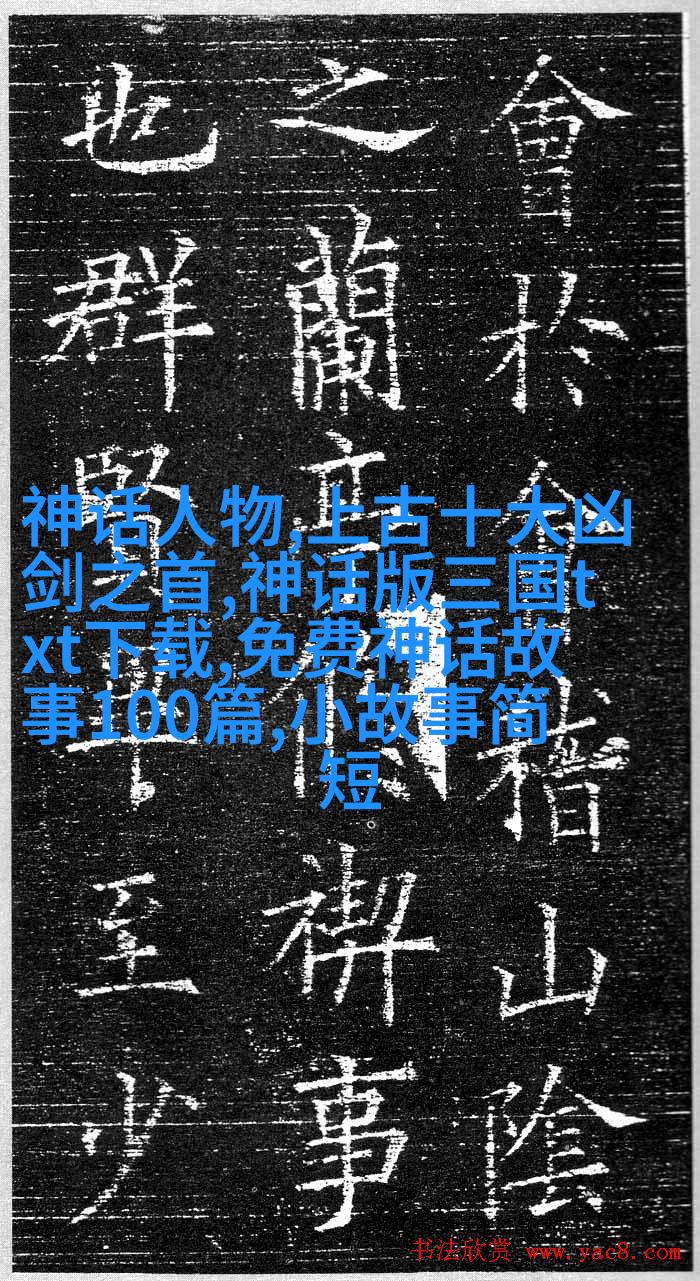 會於會稽山陰
之蘭亭脩禊事
也群賢畢至少
神话人物,上古十大凶
剑之首,神话版三国t
xt下载,免费神话故
事100篇,小故事简
短
书法欣赏 www.yac8.com